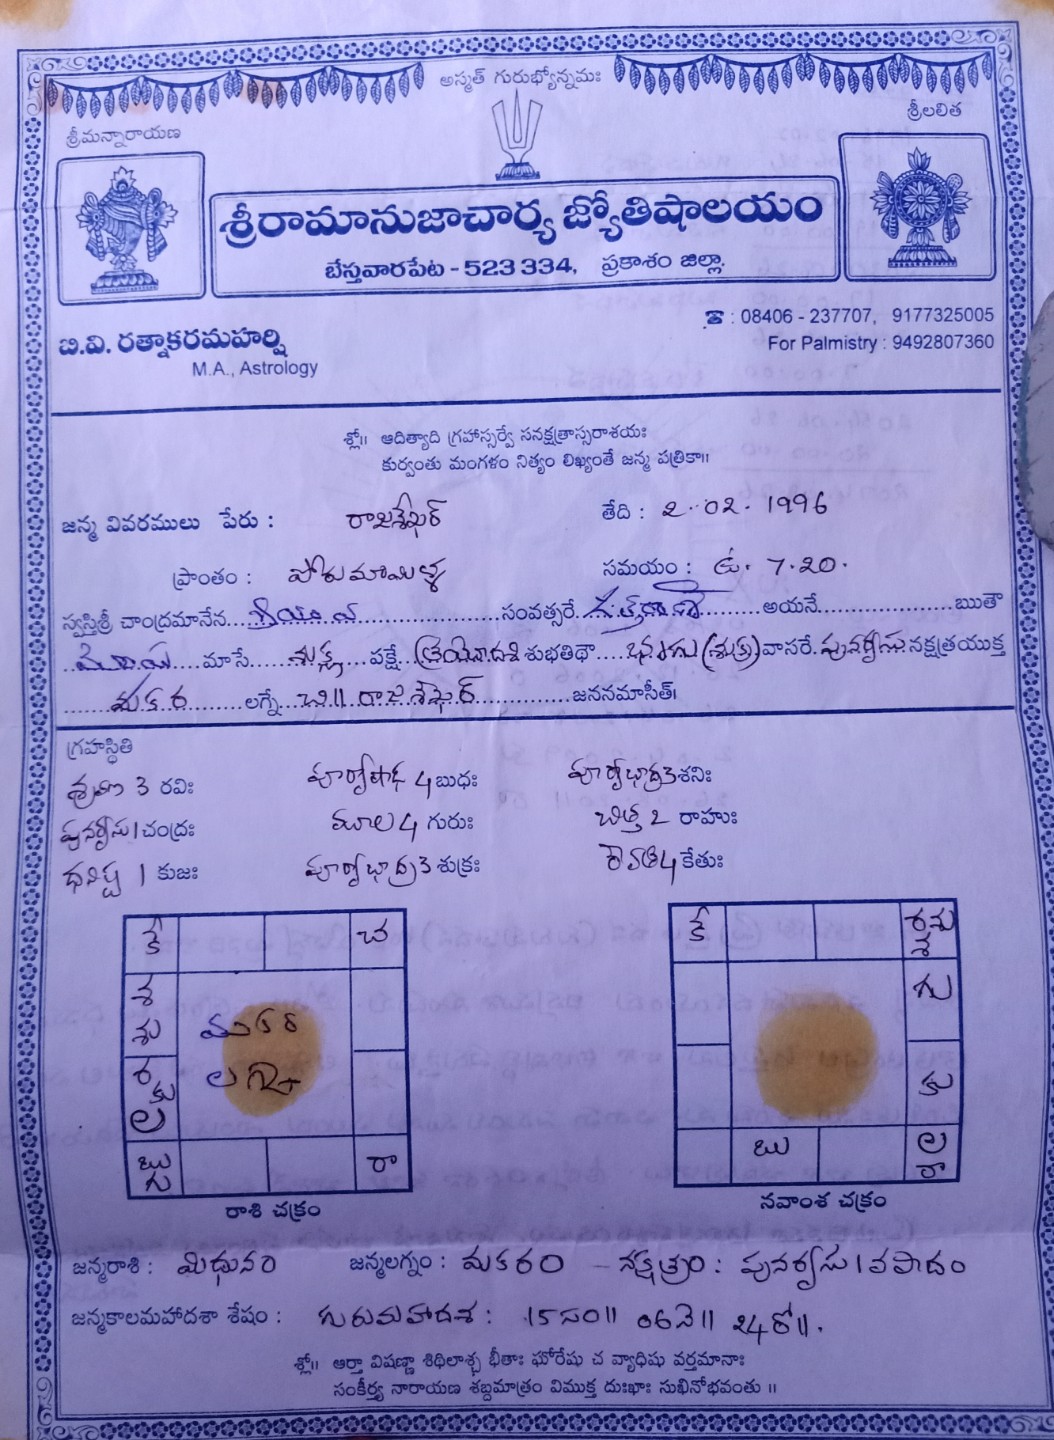 అస్మత్ గురుభ్యోన్నమః
శ్రీమన్నారాయణ
శ్రీలలిత
శ్రీరామానుజాచార్య జ్యోతిషాలయం
బేస్తవారపేట - 523 334, ప్రకాశం జిల్లా.
బి.వి. రత్నాకరమహర్షి
M.A., Astrology
☎ : 08406 - 237707, 9177325005
For Palmistry : 9492807360
శ్లో॥ ఆదిత్యాది గ్రహాస్సర్వే సనక్షత్రాస్సరాశయః
కుర్వంతు మంగళం నిత్యం లిఖ్యంతే జన్మ పత్రికా॥
జన్మ వివరములు పేరు : రాజశేఖర్ తేది : 2-02-1996
ప్రాంతం : పోరుమామిళ్ళ సమయం : ఉ. 7.20.
స్వస్తిశ్రీ చాంద్రమానేన సంవత్సరే. అయనే ఋతౌ
మాసే శుక్ల పక్షే త్రయోదశి శుభతిథౌ వాసరే. పునర్వసు నక్షత్రయుక్త
మకర లగ్నే చి॥ రాజశేఖర్ జననమాసీత్।
గ్రహస్థితి
శ్రవణ 3 రవిః పూర్వాషాఢ 4 బుధః పూర్వాభాద్ర 3 శనిః
పునర్వసు 1 చంద్రః మూల 4 గురుః చిత్త 2 రాహుః
ధనిష్ట 1 కుజః పూర్వాభాద్ర 3 శుక్రః రేవతి 4 కేతుః
కే చ
శ
శు
మకర
ర
కు
ల
లగ్నం
బు
గు
రా
రాశి చక్రం
కే
ర చ శు
శ
గు
కు
బు
ల
రా
నవాంశ చక్రం
జన్మరాశి : మిథునం జన్మలగ్నం : మకరం - నక్షత్రం : పునర్వసు 1వ పాదం
జన్మకాలమహాదశా శేషం : గురుమహాదశ : 15 సం॥ 06 నె॥ 24 రో॥.
శ్లో॥ ఆర్తా విషణ్ణా శిథిలాశ్చ భీతాః ఘోరేషు చ వ్యాధిషు వర్తమానాః
సంకీర్త్య నారాయణ శబ్దమాత్రం విముక్త దుఃఖాః సుఖినోభవంతు ॥